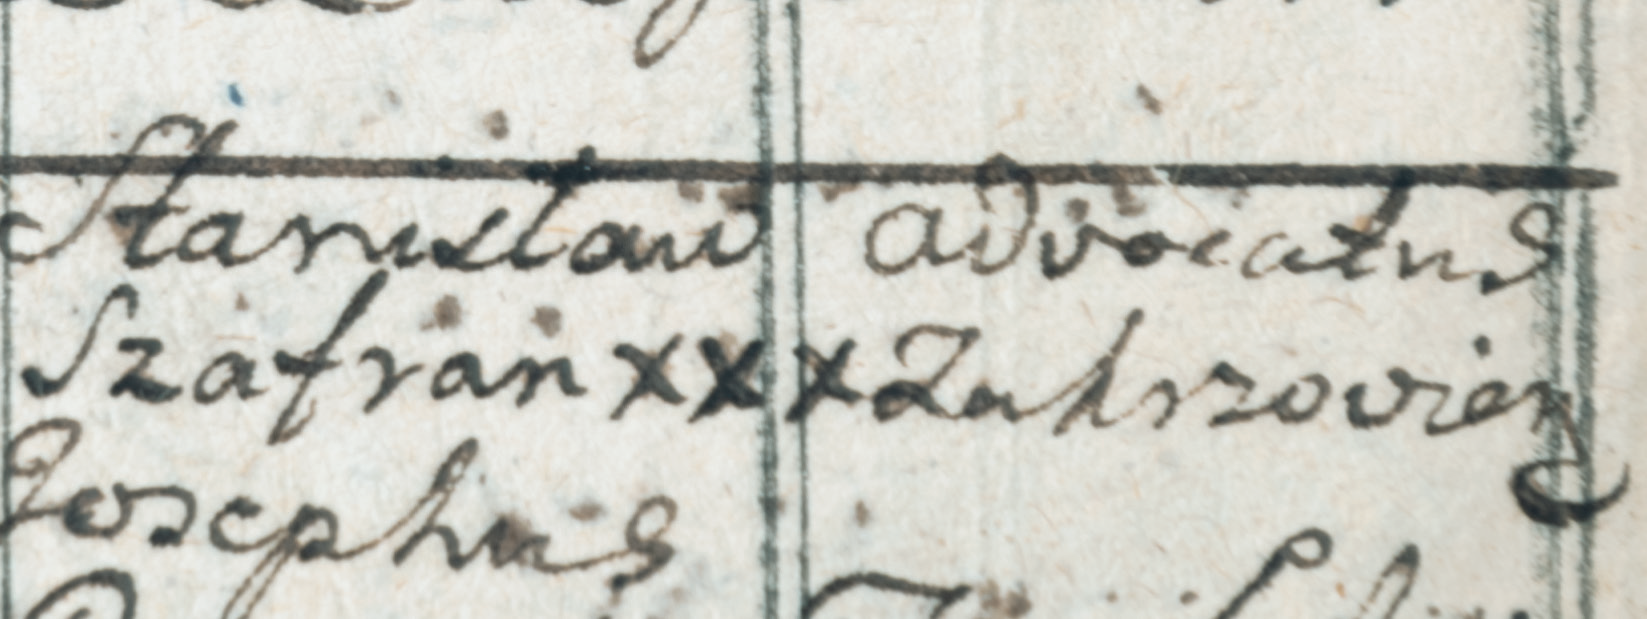 Stanislaw advocatus
Szafran xxx Zakrzovien
Josephus